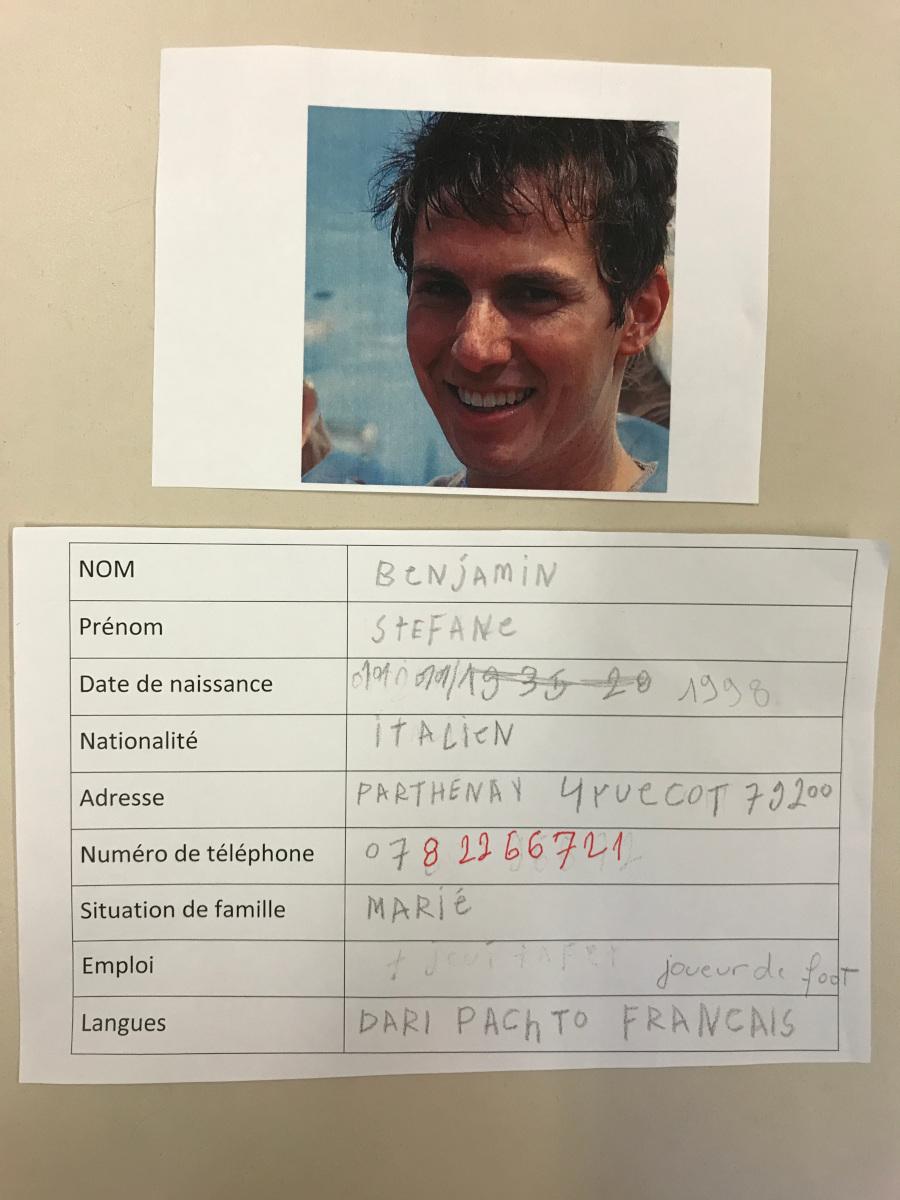 NOM BENJAMIN
Prénom STEFANE
Date de naissance 1998
Nationalité ITALIEN
Adresse PARTHENAY 4 rue COT 79200
Numéro de téléphone 07 8 22 66 721
Situation de famille MARIÉ
Emploi joueur de fooT
Langues DARI PAChTO FRANCAIS